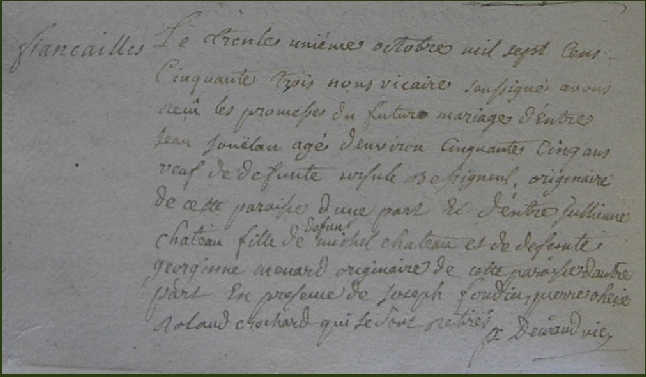 fiançailles Le trente unième octobre mil sept cens
Cinquante trois nous vicaire soussigné avons
reçû les promesses du futur mariage d'entre
jean agé d'environ Cinquante Cinq ans
veuf de defunte ursule originaire
de cette paroisse d'une part Et d'entre Jullienne
chateau fille de defunt michel chateau et de defunte
georginne menard originaire de cette paroisse d'autre
part En presence de joseph pierre
Roland crochard qui se sont retirés